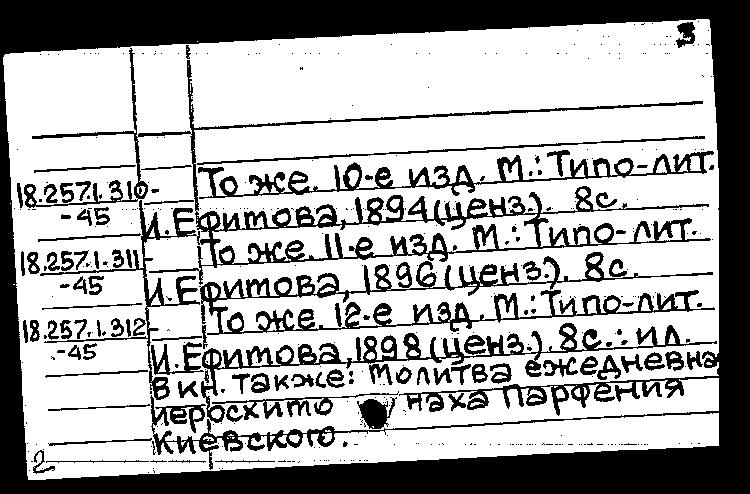 3
18.257.1.310- То же. 10-е изд. М.: Типо-лит.
-45 И. Ефитова, 1894 (ценз.). 8с.
18.257.1.311- То же. 11-е изд. М.: Типо-лит.
-45 И. Ефитова, 1896 (ценз.). 8с.
18.257.1.312- То же. 12-е изд. М.: Типо-лит.
-45 И. Ефитова, 1898 (ценз.). 8с.: ил.
В кн. также: Молитва ежедневная
иеросхимо наха Парфения
Киевского.
2